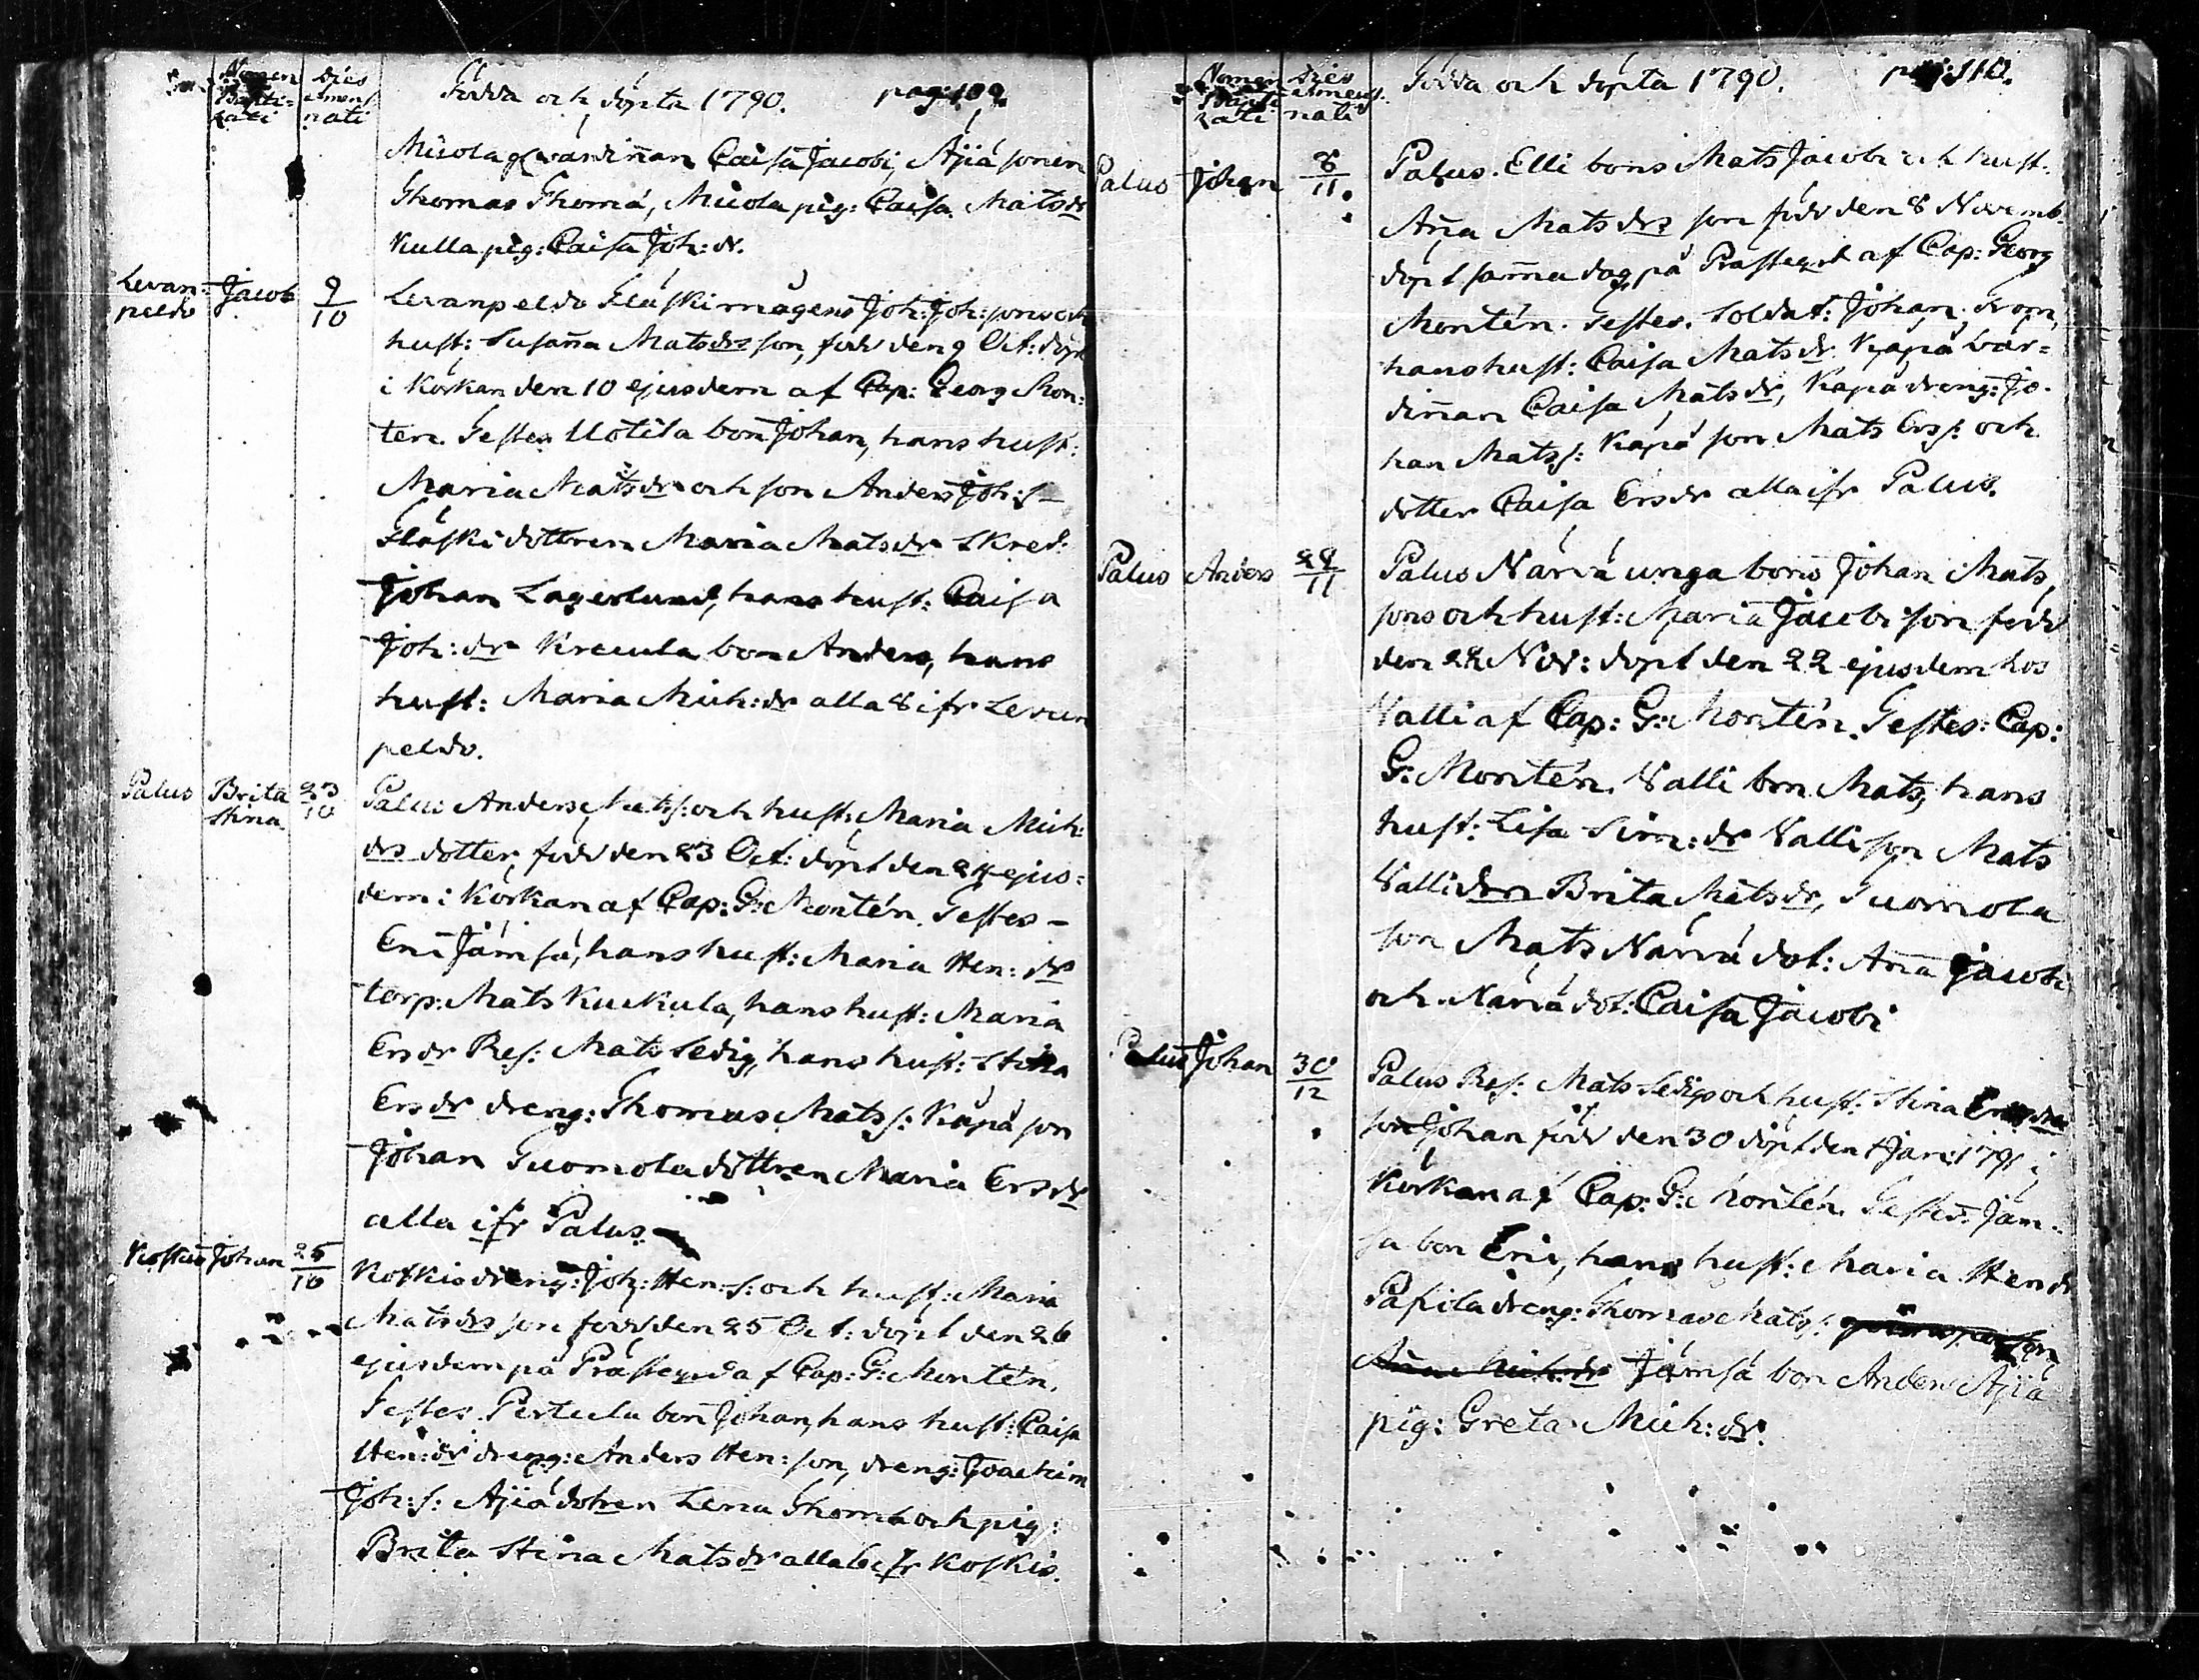 Nomen Dies
Bapti- & mens.
zati nati
Födda och döpta 1790. pag: 109.
Micola gl. värdiñan Caisa Jacobi, Äjjä sonen
Thomas Thomä, Micola pig: Caisa Matsdr
Kulla pig: Caisa Joh: dr.
Levan- Jacob 9/10 Levanpeldo Släski mågens Joh: Joh: sons och
peldo hust: Susaña Matsdrs son, född den 9 Oct: döpt
i Körkan den 10 ejusdem af Cap: Georg Mon-
ten. Testes Uotila bon Johan, hans hust:
Maria Matsdr och son Anders Joh: s-
Släski döttren Maria Matsdr Skred:
Johan Lagerlund, hans hust: Caisa
Joh: dr Kreeula bon Anders, hans
hust: Maria Mich: dr alla 8 ifr Levan
peldo.
Palus Brita 23/10 Palus Anders Mats s: och hust: Maria Mich:
Stina drs dotter, född den 23 Oct: döpt den 24 ejus-
dem i Körkan af Cap: G: Montén. Testes -
Eric Jämsä, hans hust: Maria Hen: dr
torp: Mats Kuckula, hans hust: Maria
Ersdr Res: Mats Sedig, hans hust: Stina
Ersdr dreng: Thomas Mats s: Käpä son
Johan Tuomola döttren Maria Ersdr
alla ifr Palus
Koskis Johan 25/10 Koskis dreng: Joh: Hen: s: och hust: Maria
Matsdrs son född den 25 Oct: döpt den 26
ejusdem på Prästegrd af Cap: G: Montén.
Testes. Perteela bon Johan, hans hust: Caisa
Hen: dr dreng: Anders Hen: son, dreng: Joachim
Joh: s: Äjjä dotren Lena Thomä och pig:
Brita Stina Matsdr alla 6 ifr Koskis.
Nomen Dies
Bapti- & mens.
zati nati
Födda och döpta 1790. pag: 110.
Palus Johan 8/11 Palus. Elli bons Mats Jacobi och hust.
Aña Matsdrs son född den 8 Novemb.
döpt samma dag på Prästegrd af Cap: Georg
Montén. Testes. Soldat: Johan From,
hans hust: Caisa Matsdr. Käpä vär-
diñan Caisa Matsdr, Käpä dreng: Jo-
han Mats s: Käpä son Mats Ers s: och
dotter Caisa Ersdr alla ifr Palus.
Palus Anders 22/11 Palus Närvä unga bons Johan Mats
sons och hust: Maria Jacobi son född
den 22 Nov: döpt den 22 ejusdem hos
Valli af Cap: G: Montén. Testes: Cap:
G: Montén. Valli bon Mats, hans
hust: Lisa Sim: dr Valli son Mats
Valli drn Brita Matsdr, Tuomola
son Mats Närvä dot: Aña Jacobi
och Närvä dot: Caisa Jacobi
Palus Johan 30/12 Palus Res: Mats Sedigs och hust: Stina Ersdrs
son Johan född den 30 döpt den 1 Jan: 1791 i
Körkan af Cap: G: Montén. Testes: Jäm-
sä bon Eric, hans hust: Maria Hendr
Pafila dreng: Thomas Mats s:
Aña Mich: dr Jämsä bon Anders Äjjä
pig: Greta Mich: dr.